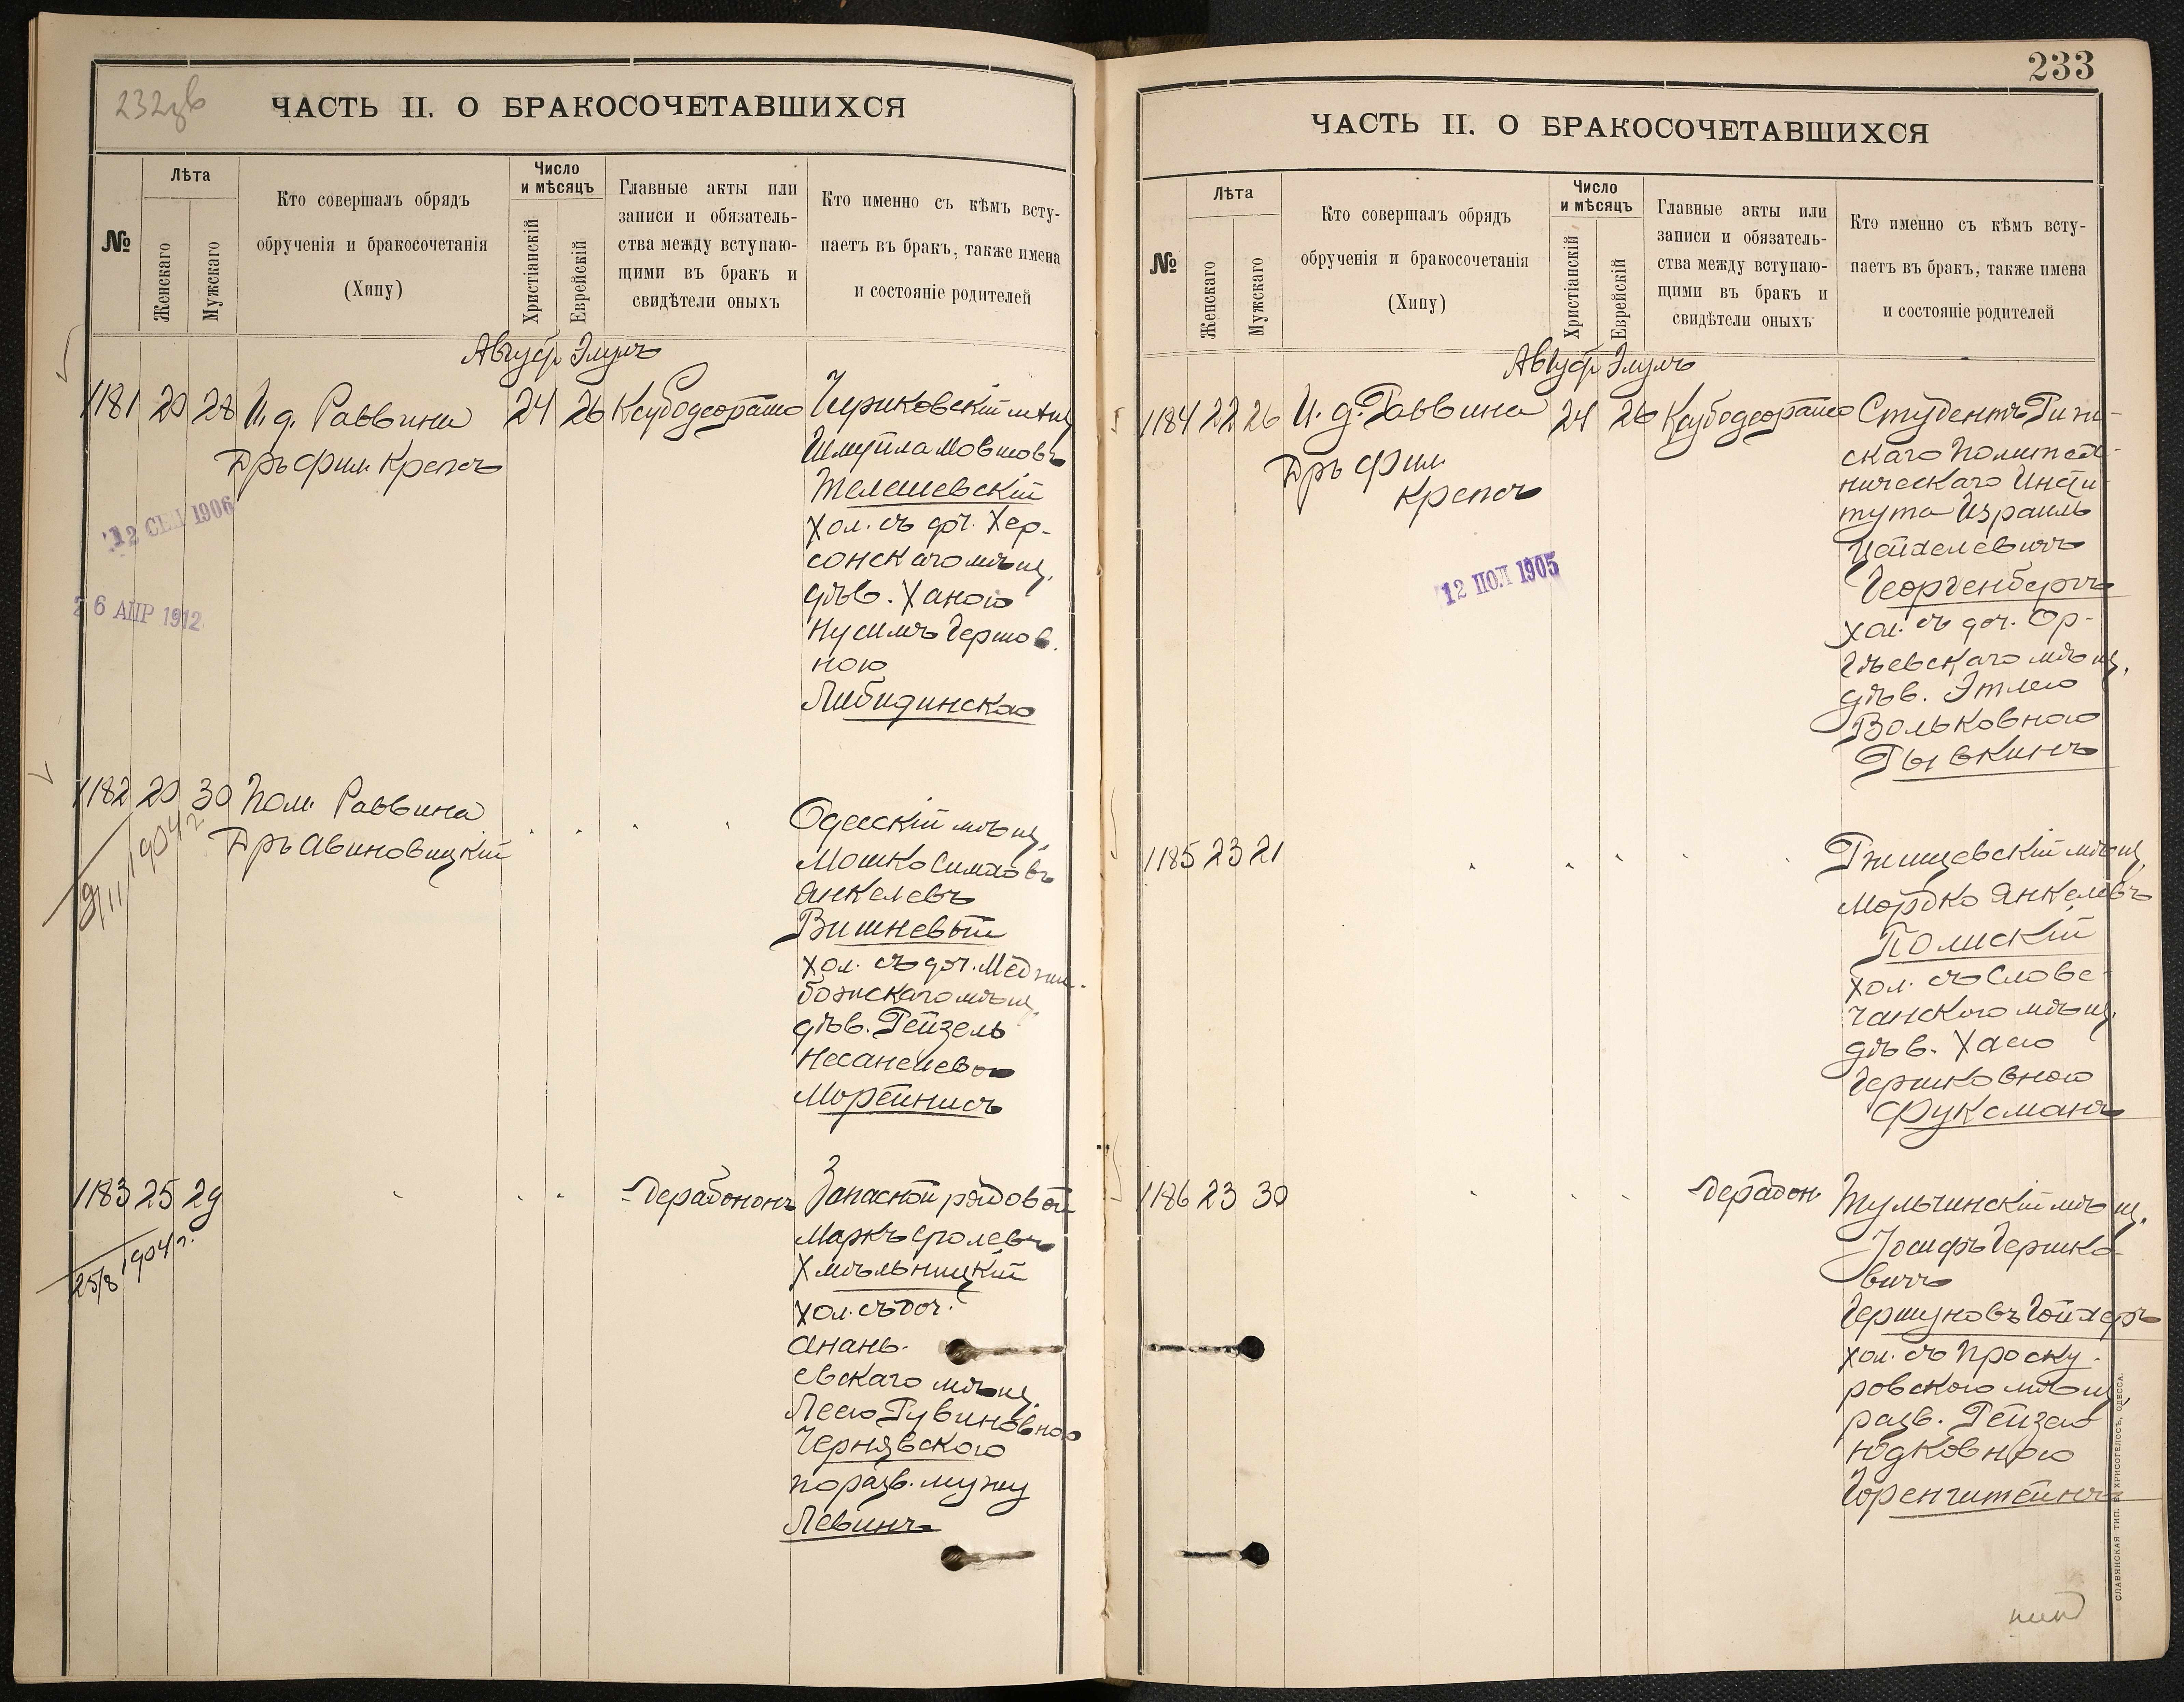 ЧАСТЬ II. О БРАКОСОЧЕТАВШИХСЯ
№
Лѣта
Женскаго
Мужскаго
Кто совершалъ обрядъ
обрученія и бракосочетанія
(Хипу)
Число
и мѣсяцъ
Христіанскій
Еврейскій
Главные акты или
записи и обязатель-
ства между вступаю-
щими въ бракъ и
свидѣтели оныхъ
Кто именно съ кѣмъ всту-
паетъ въ бракъ, также имена
и состояніе родителей
Август Элулъ
1181 20 28 И. д. Раввина 24 26
Дръ фил. Крепсъ
12 СЕН 1906
26 АПР 1912
Шмуила Мовшовъ
Телешевскій
хол. съ доч. Хер-
сонскаго мѣщ.
дѣв. Ханою
Нусимъ Гершов.
ною
Либидинская
1182 20 30 Пом. Раввина
Дръ Авиновицкій
9/11 1904 г.
Одесскій мѣщ.
Мошко Симховъ
Янкелевъ
Вишневый
хол. съ доч. Меджи-
божскаго мѣщ.
дѣв. Рейзель
Несанелевою
Морейнисъ
1183 25 29
25/8 1904 г.
Дерабононъ
Запасной рядовой
Маркъ Сролевъ
Хмѣльницкій
хол. съ доч.
Анань-
евскаго мѣщ.
Леею Рувиновною
Чернявскою
по разв. мужу
Левинъ
233
ЧАСТЬ II. О БРАКОСОЧЕТАВШИХСЯ
№
Лѣта
Женскаго
Мужскаго
Кто совершалъ обрядъ
обрученія и бракосочетанія
(Хипу)
Число
и мѣсяцъ
Христіанскій
Еврейскій
Главные акты или
записи и обязатель-
ства между вступаю-
щими въ бракъ и
свидѣтели оныхъ
Кто именно съ кѣмъ всту-
паетъ въ бракъ, также имена
и состояніе родителей
Август Элулъ
1184 22 26 И. д. Раввина 24 26
Дръ фил.
Крепсъ
12 ПОЛ 1905
Студентъ Риж-
скаго Политех-
ническаго Инсти-
тута Израиль
Ихелевичъ
Георгенбергъ
хол. съ доч. Ор-
гѣевскаго мѣщ.
дѣв. Этлею
Вольковною
Рывкинъ
1185 23 21
Ржищевскій мѣщ.
Мордко Янкелевъ
Полискій
хол. съ Слове-
чанскою мѣщ.
дѣв. Хаею
Гершковною
Фуксманъ
1186 23 30
Дерабон.
Тульчинскій мѣщ.
Іосифъ Гершко-
вичъ
Гершуновъ Гойхеръ
хол. съ Проску-
ровскою мѣщ.
разв. Рейзею
Юдковною
Горенштейнъ
СЛАВЯНСКАЯ ТИП. Н. ХРИСОГЕЛОСЪ, ОДЕССА.